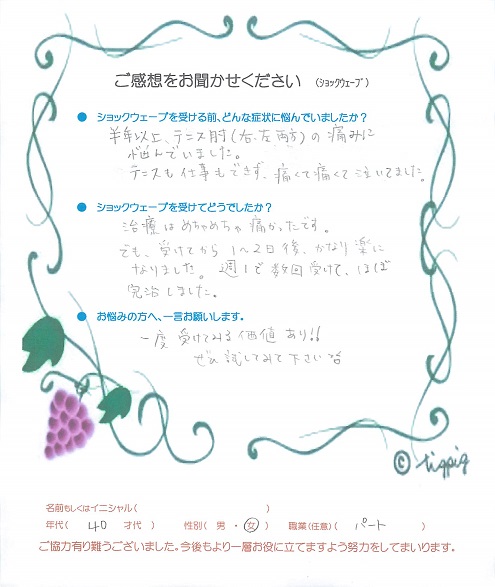 ご感想をお聞かせください (ショックウェーブ)
● ショックウェーブを受ける前、どんな症状に悩んでいましたか?
半年以上、テニス肘(右、左両方)の痛みに
悩んでいました。
テニスも仕事もできず、痛くて痛くて泣いてました。
● ショックウェーブを受けてどうでしたか?
治療はめちゃめちゃ痛かったです。
でも、受けてから1〜2日後、かなり楽に
なりました。週1で数回受けて、ほぼ
完治しました。
● お悩みの方へ、一言お願いします。
一度受けてみる価値あり!!
ぜひ試してみて下さい
© tigpig
名前もしくはイニシャル( )
年代( 40 才代 ) 性別( 男 ・ 女 ) 職業(任意)( パート )
ご協力有り難うございました。今後もより一層お役に立てますよう努力をしてまいります。